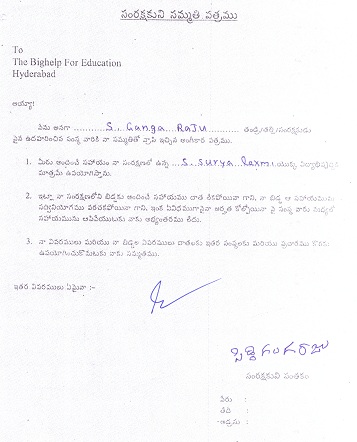 సంరక్షకుని సమ్మతి పత్రము
To
The Bighelp For Education
Hyderabad
అయ్యా!
నేను అనగా ............S. Ganga Raju............ తండ్రి/తల్లి/సంరక్షకుడు
పైన ఉదహరించిన సంస్థ వారికి నా సమ్మతితో వ్రాసి ఇచ్చిన అంగీకార పత్రము.
1. మీరు అందించే సహాయం నా సంరక్షణలో ఉన్న ....S. Surya laxmi యొక్క విద్యాభివృద్ధికి
మాత్రమే ఉపయోగిస్తాను.
2. ఇట్లా నా సంరక్షణలోని బిడ్డకు అందించే సహాయము దాత లేకపోయినా గాని, నా బిడ్డ ఆ సహాయమును
సద్వినియోగము పరచకపోయినా గాని, ఇంక ఏవిధముగానైనా అర్హత కోల్పోయినా పై సంస్థ వారు
సహాయమును ఆపివేయుటకు నాకు అభ్యంతరము లేదు.
3. నా వివరములు మరియు నా బిడ్డల వివరములు దాతలకు ఇతర సంస్థలకు మరియు ప్రచారము కొరకు
ఉపయోగించుకొనుటకు నాకు సమ్మతము.
ఇతర వివరములు ఏమైనా :-
గంగరాజు
సంరక్షకుని సంతకం
పేరు :
తేది :